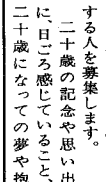 する人を募集します。
二十歳の記念や思い出
に、日ごろ感じていること、
二十歳になっての夢や抱